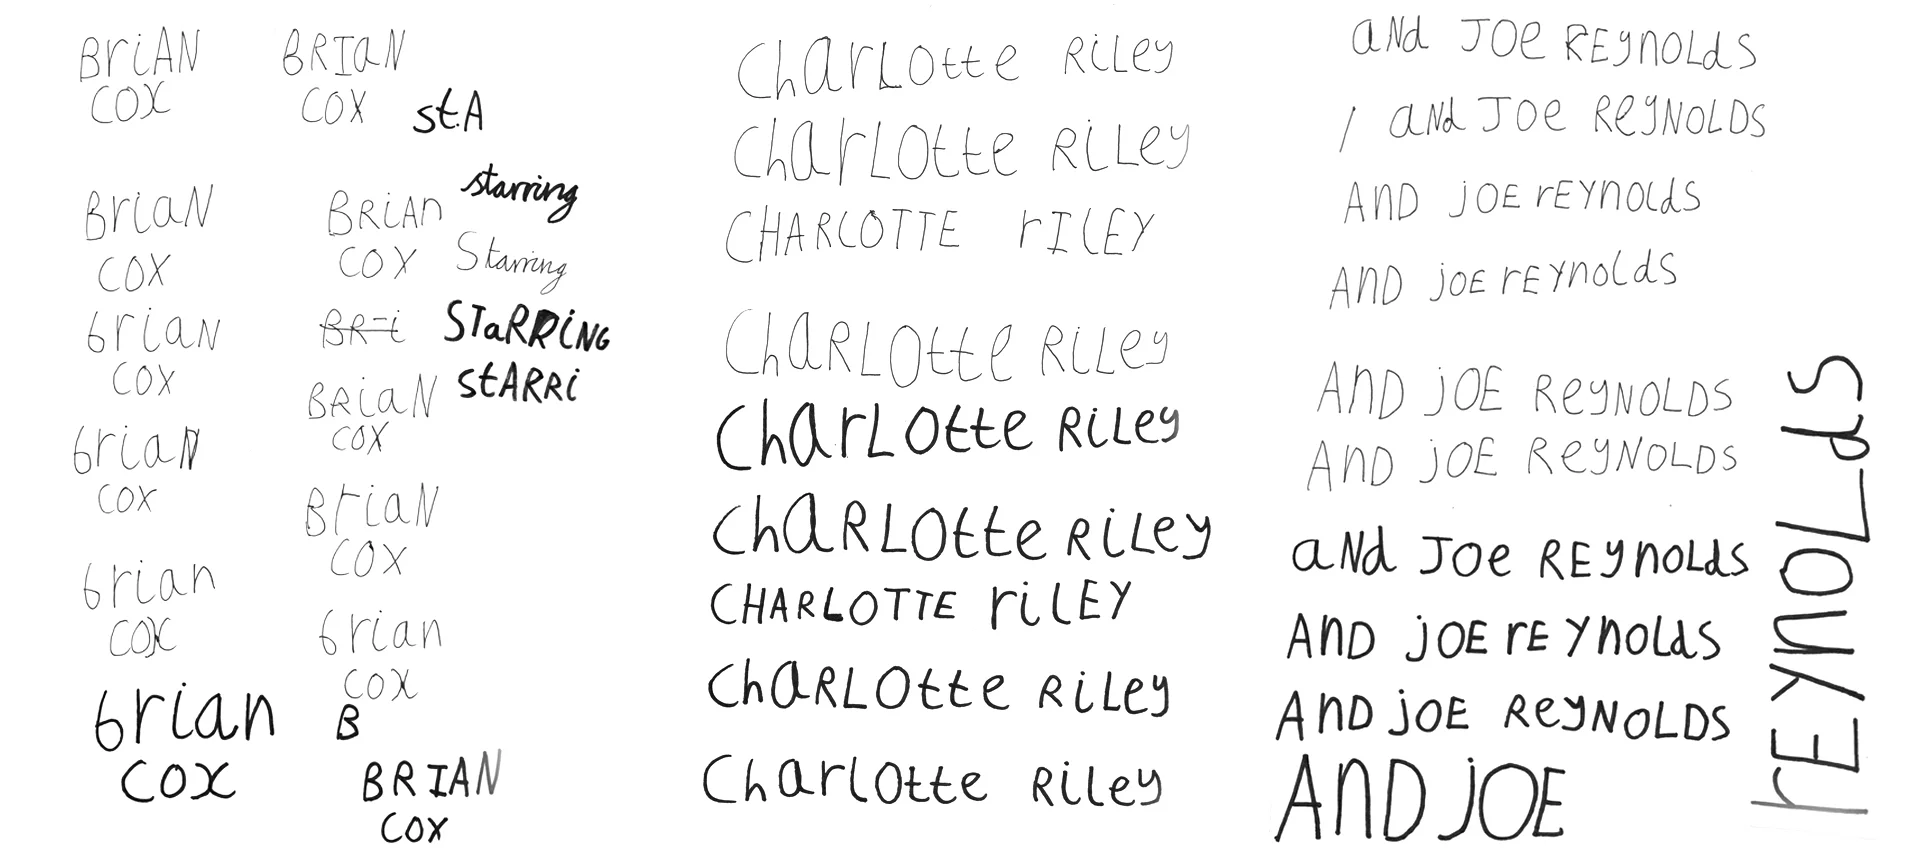 BriAN
COX
BriaN
COX
6riaN
COX
6riaN
COX
6rian
COX
6rian
COX
BRIaN
COX
stA
starring
BRiAn
COX
Starring
BR-i
STaRRiNG
stARRi
BRiaN
COX
BriaN
COX
6rian
COX
B
BRIAN
COX
CharLotte RiLey
CharLOtte RiLey
CHARLOTTE rILEY
ChaRLOtte RiLey
CharLOtte RiLey
ChaRLOtte RiLey
CHARLOTTE riLEY
ChaRLOtte RiLey
Charlotte Riley
aNd JOe REynOLds
/ aNd JOe ReyNOLDS
AND jOE rEYnOLds
AnD jOE rEYnOLdS
AnD jOE ReyNOLDS
AnD jOE ReyNOLDS
aNd JOe REynOLds
AnD jOE rEYnOLds
AnD jOE ReyNOLDS
AND jOE
rEYnOLdS